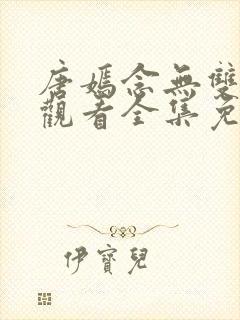 唐嫣念無雙
觀看全集免
伊寶兒